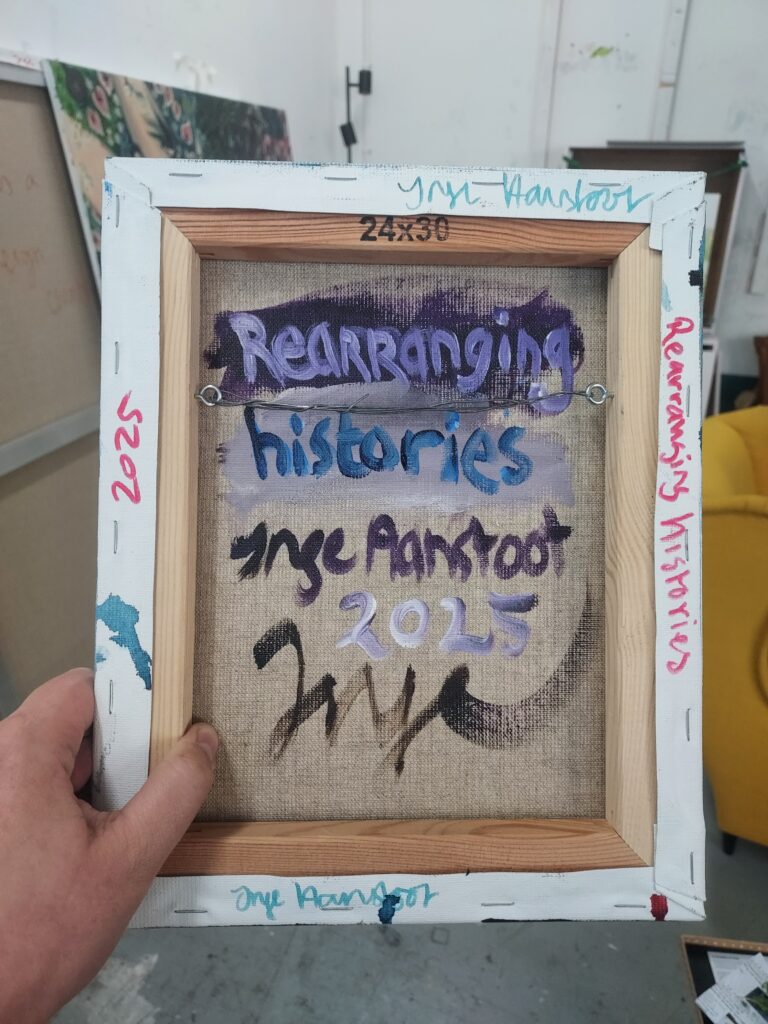 Inge Aanstoot
24x30
Rearranging
histories
Inge Aanstoot
2025
Inge
2025
Rearranging histories
Inge Aanstoot